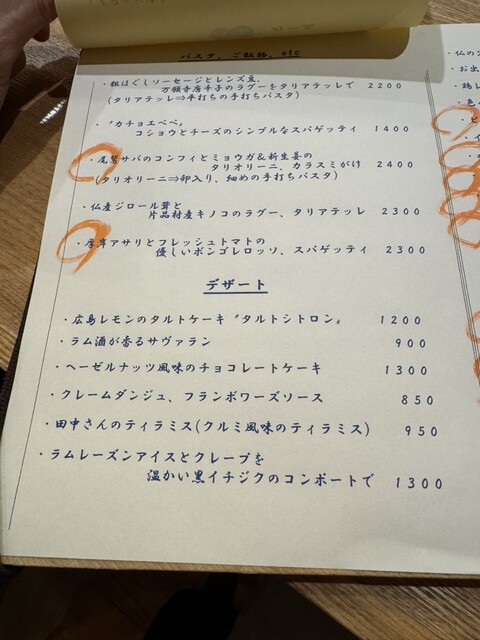 パスタ、ご飯物、etc
・粗ほぐしソーセージとレンズ豆、
万願寺唐辛子のラグーをタリアテッレで 2200
(タリアテッレ⇒平打ちの手打ちパスタ)
・〝カチョエペペ〟
コショウとチーズのシンプルなスパゲッティ 1400
・尾鷲サバのコンフィとミョウガ&新生姜の
タリオリーニ、カラスミがけ 2400
(タリオリーニ⇒卵入り、細めの手打ちパスタ)
・仏産ジロール茸と
片品村産キノコのラグー、タリアテッレ 2300
・厚岸アサリとフレッシュトマトの
優しいボンゴレロッソ、スパゲッティ 2300
デザート
・広島レモンのタルトケーキ〝タルトシトロン〟 1200
・ラム酒が香るサヴァラン 900
・ヘーゼルナッツ風味のチョコレートケーキ 1300
・クレームダンジュ、フランボワーズソース 850
・田中さんのティラミス(クルミ風味のティラミス) 950
・ラムレーズンアイスとクレープを
温かい黒イチジクのコンポートで 1300
・仏の
・お出
・鶏レ
・色